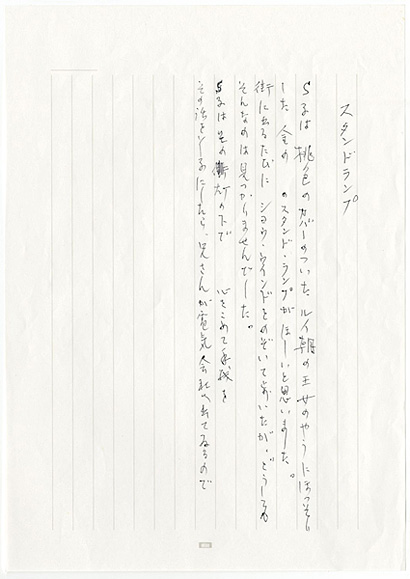 スタンドランプ
S子は 桃色のカバーのついた ルイ朝の王女のやうにほっそり
した 金の のスタンド・ランプが ほしいと思いました。
街に出るたびに ショウ・ウインドをのぞいて歩いたが、どうしても
そんなのは見つかりませんでした。
S子は その街灯の下で 心をこめて手紙を
その話をし子にしたら、兄さんが電気会社へ出てゐるので